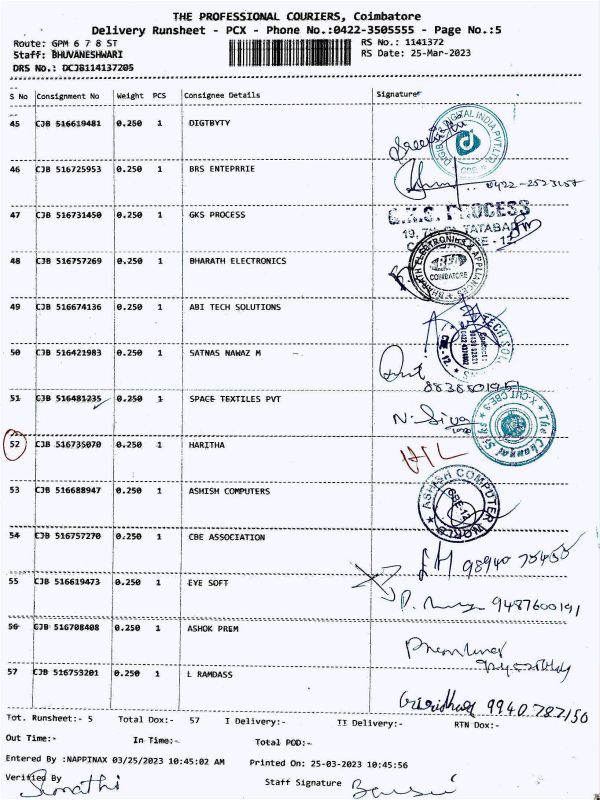 THE PROFESSIONAL COURIERS, Coimbatore
Delivery Runsheet - PCX - Phone No.:0422-3505555 - Page No.:5
Route: GPM 6 7 8 ST RS No.: 1141372
Staff: BHUVANESHWARI RS Date: 25-Mar-2023
DRS No.: DCJB114137205
S No Consignment No Weight PCS Consignee Details Signature
45 CJB 516619481 0.250 1 DIGTBYTY
46 CJB 516725953 0.250 1 BRS ENTEPRRIE
47 CJB 516731450 0.250 1 GKS PROCESS
G.K.S. PROCESS
48 CJB 516757269 0.250 1 BHARATH ELECTRONICS
BHARATH ELECTRONIKS & APPLIANCES
COIMBATORE
49 CJB 516674136 0.250 1 ABI TECH SOLUTIONS
50 CJB 516421983 0.250 1 SATNAS NAWAZ M
51 CJB 516481235 0.250 1 SPACE TEXTILES PVT
N. Siva
The Chennai Silks
X-CUT CBE-3
52 CJB 516735070 0.250 1 HARITHA
53 CJB 516688947 0.250 1 ASHISH COMPUTERS
ASHISH COMPUTER WORLD
CBE-12
54 CJB 516757270 0.250 1 CBE ASSOCIATION
55 CJB 516619473 0.250 1 EYE SOFT
9487600191
56 CJB 516708408 0.250 1 ASHOK PREM
57 CJB 516753201 0.250 1 L RAMDASS
9940787150
Tot. Runsheet:- 5 Total Dox:- 57 I Delivery:- II Delivery:- RTN Dox:-
Out Time:- In Time:- Total POD:-
Entered By :NAPPINAX 03/25/2023 10:45:02 AM Printed On: 25-03-2023 10:45:56
Verified By Staff Signature